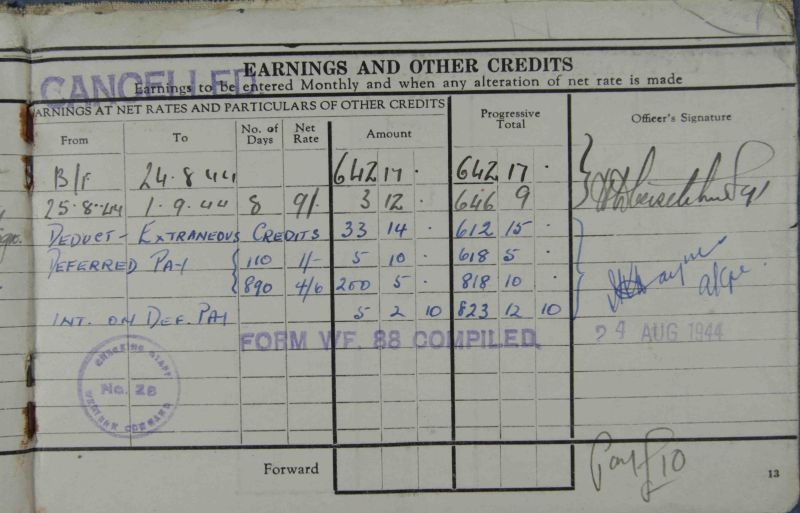 CANCELLED
EARNINGS AND OTHER CREDITS
Earnings to be entered Monthly and when any alteration of net rate is made
ARNINGS AT NET RATES AND PARTICULARS OF OTHER CREDITS
From To No. of Days Net Rate Amount Progressive Total Officer's Signature
B/F 24.8.44 642 17 . 642 17 .
25.8.44 1.9.44 8 9/- 3 12 . 646 9 .
DEDUCT - EXTRANEOUS CREDITS 33 14 . 612 15 .
DEFERRED PAY 110 1/- 5 10 . 618 5 .
890 4/6 200 5 . 818 10 .
INT. ON DEF. PAY 5 2 10 823 12 10
FORM WF. 88 COMPILED.
24 AUG 1944
CHECKING STAFF
No. 28
WESTERN COMMAND
Pay £10
Forward
13